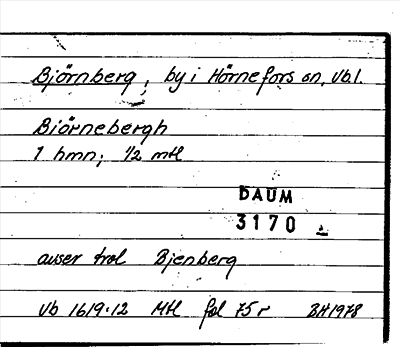 Björnberg, by i Hörnefors sn, Vb.l.
Biörnebergh
1 hmn; 1/2 mtl
DAUM
3170
avser trol Bjenberg
Vb 1619:12 Mtl fol 75r BH1978